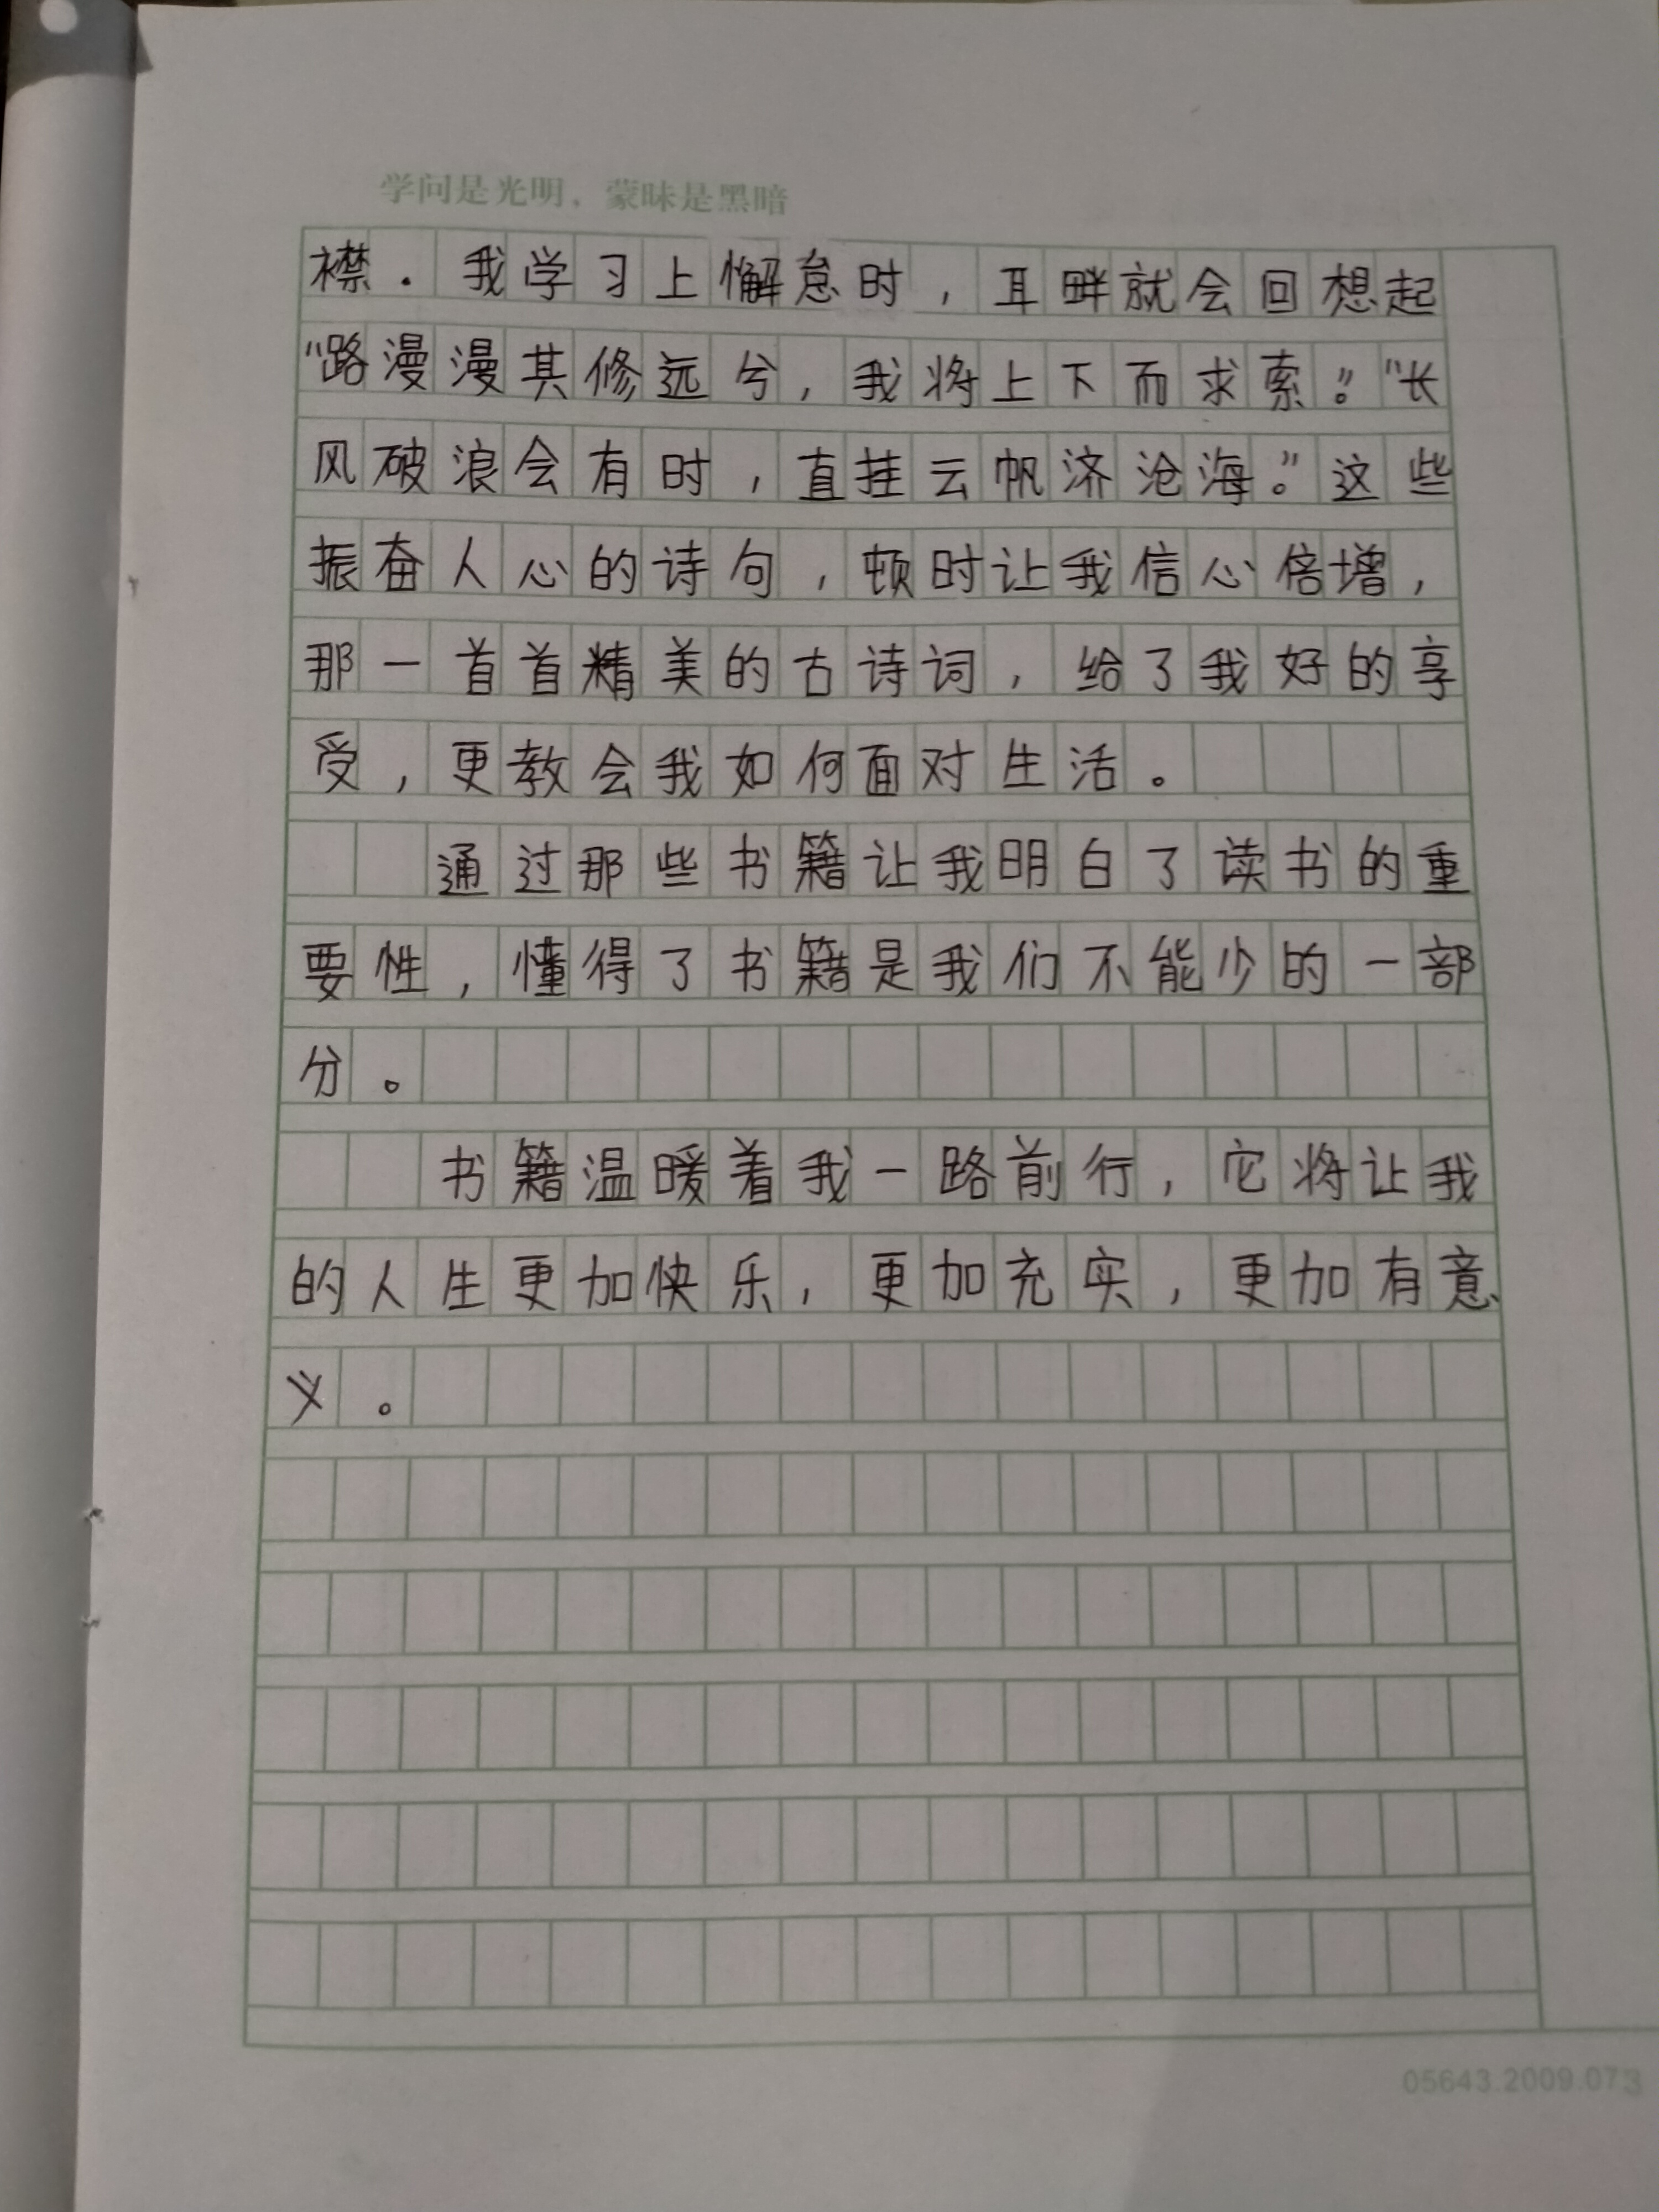 学问是光明，蒙昧是黑暗
襟．我学习上懈怠时，耳畔就会回想起
“路漫漫其修远兮，我将上下而求索。”“长
风破浪会有时，直挂云帆济沧海。”这些
振奋人心的诗句，顿时让我信心倍增，
那一首首精美的古诗词，给了我好的享
受，更教会我如何面对生活。
通过那些书籍让我明白了读书的重
要性，懂得了书籍是我们不能少的一部
分。
书籍温暖着我一路前行，它将让我
的人生更加快乐，更加充实，更加有意
义。
05643.2009.073